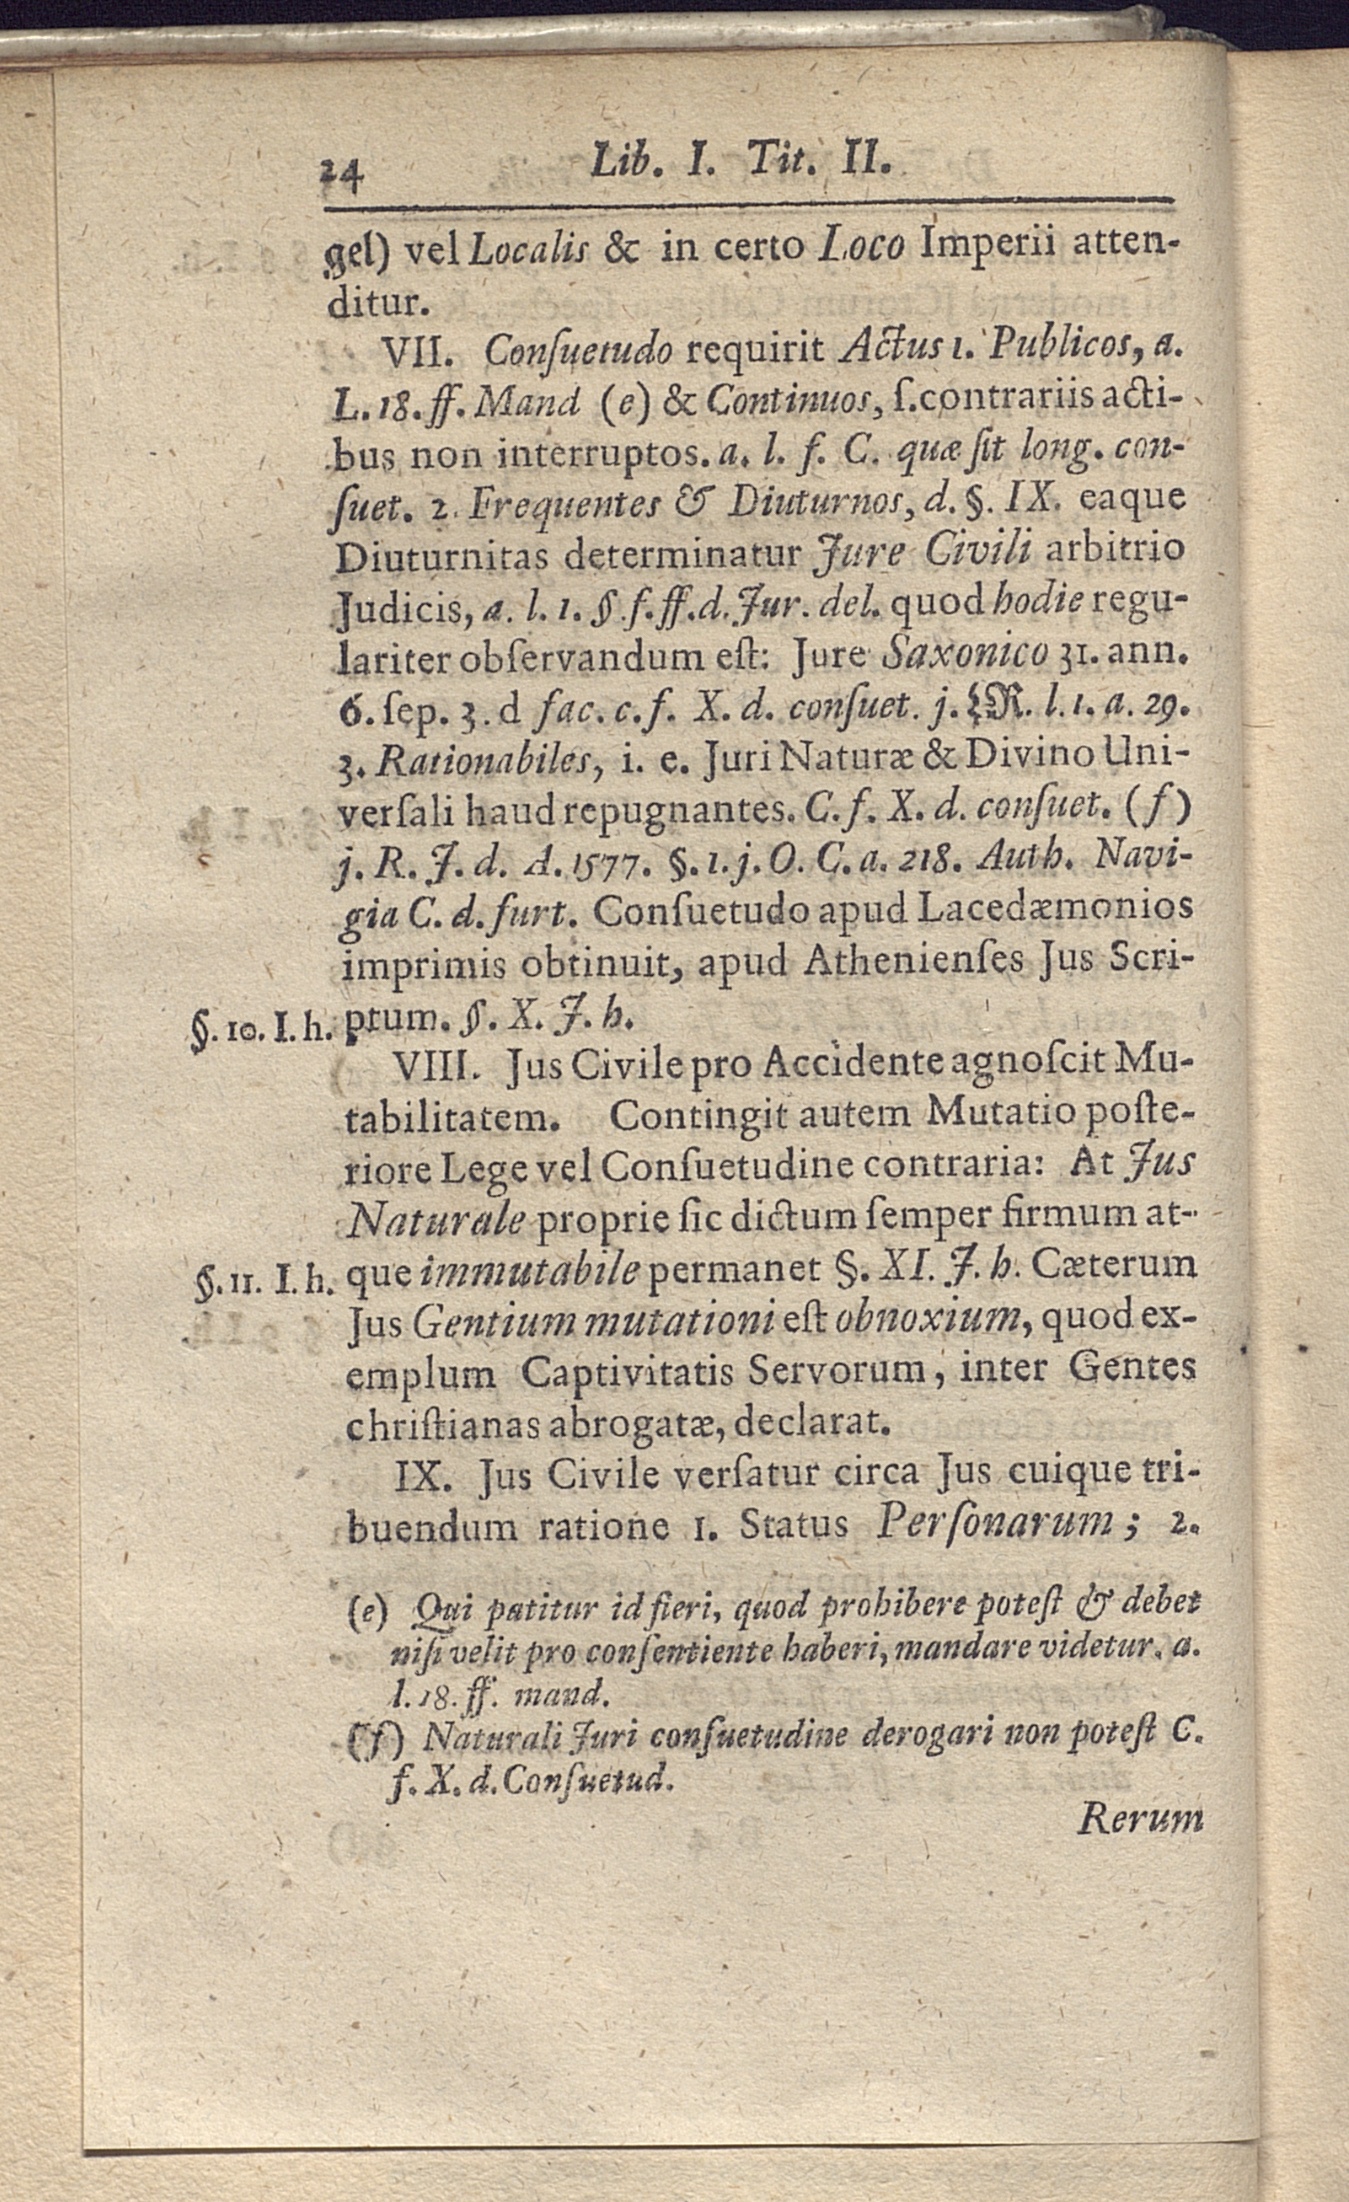 24 Lib. I. Tit. II.
gel) vel Localis & in certo Loco Imperii atten-
ditur.
VII. Conſuetudo requirit Actus 1. Publicos, a.
L. 18. ff. Mand (e) & Continuos, ſ. contrariis acti-
bus non interruptos. a. l. f. C. quæ ſit long. con-
ſuet. 2. Frequentes & Diuturnos, d. §. IX. eaque
Diuturnitas determinatur Jure Civili arbitrio
Judicis, a. l. 1. §. f. ff. d. Jur. del. quod hodie regu-
lariter obſervandum eſt: Jure Saxonico 31. ann.
6. ſep. 3. d fac. c. f. X. d. conſuet. j. LR. l. 1. a. 29.
3. Rationabiles, i. e. Juri Naturæ & Divino Uni-
verſali haud repugnantes. C. f. X. d. conſuet. (f)
j. R. J. d. A. 1577. §. 1. j. O. C. a. 218. Auth. Navi-
gia C. d. furt. Conſuetudo apud Lacedæmonios
imprimis obtinuit, apud Athenienſes Jus Scri-
§. 10. I. h. ptum. §. X. J. h.
VIII. Jus Civile pro Accidente agnoſcit Mu-
tabilitatem. Contingit autem Mutatio poſte-
riore Lege vel Conſuetudine contraria: At Jus
Naturale proprie ſic dictum ſemper firmum at-
§. 11. I. h. que immutabile permanet §. XI. J. h. Cæterum
Jus Gentium mutationi eſt obnoxium, quod ex-
emplum Captivitatis Servorum, inter Gentes
chriſtianas abrogatæ, declarat.
IX. Jus Civile verſatur circa Jus cuique tri-
buendum ratione 1. Status Perſonarum; 2.
(e) Qui patitur id fieri, quod prohibere poteſt & debet
niſi velit pro conſentiente haberi, mandare videtur. a.
l. 18. ff. mand.
(f) Naturali Juri conſuetudine derogari non poteſt C.
f. X. d. Conſuetud.
Rerum